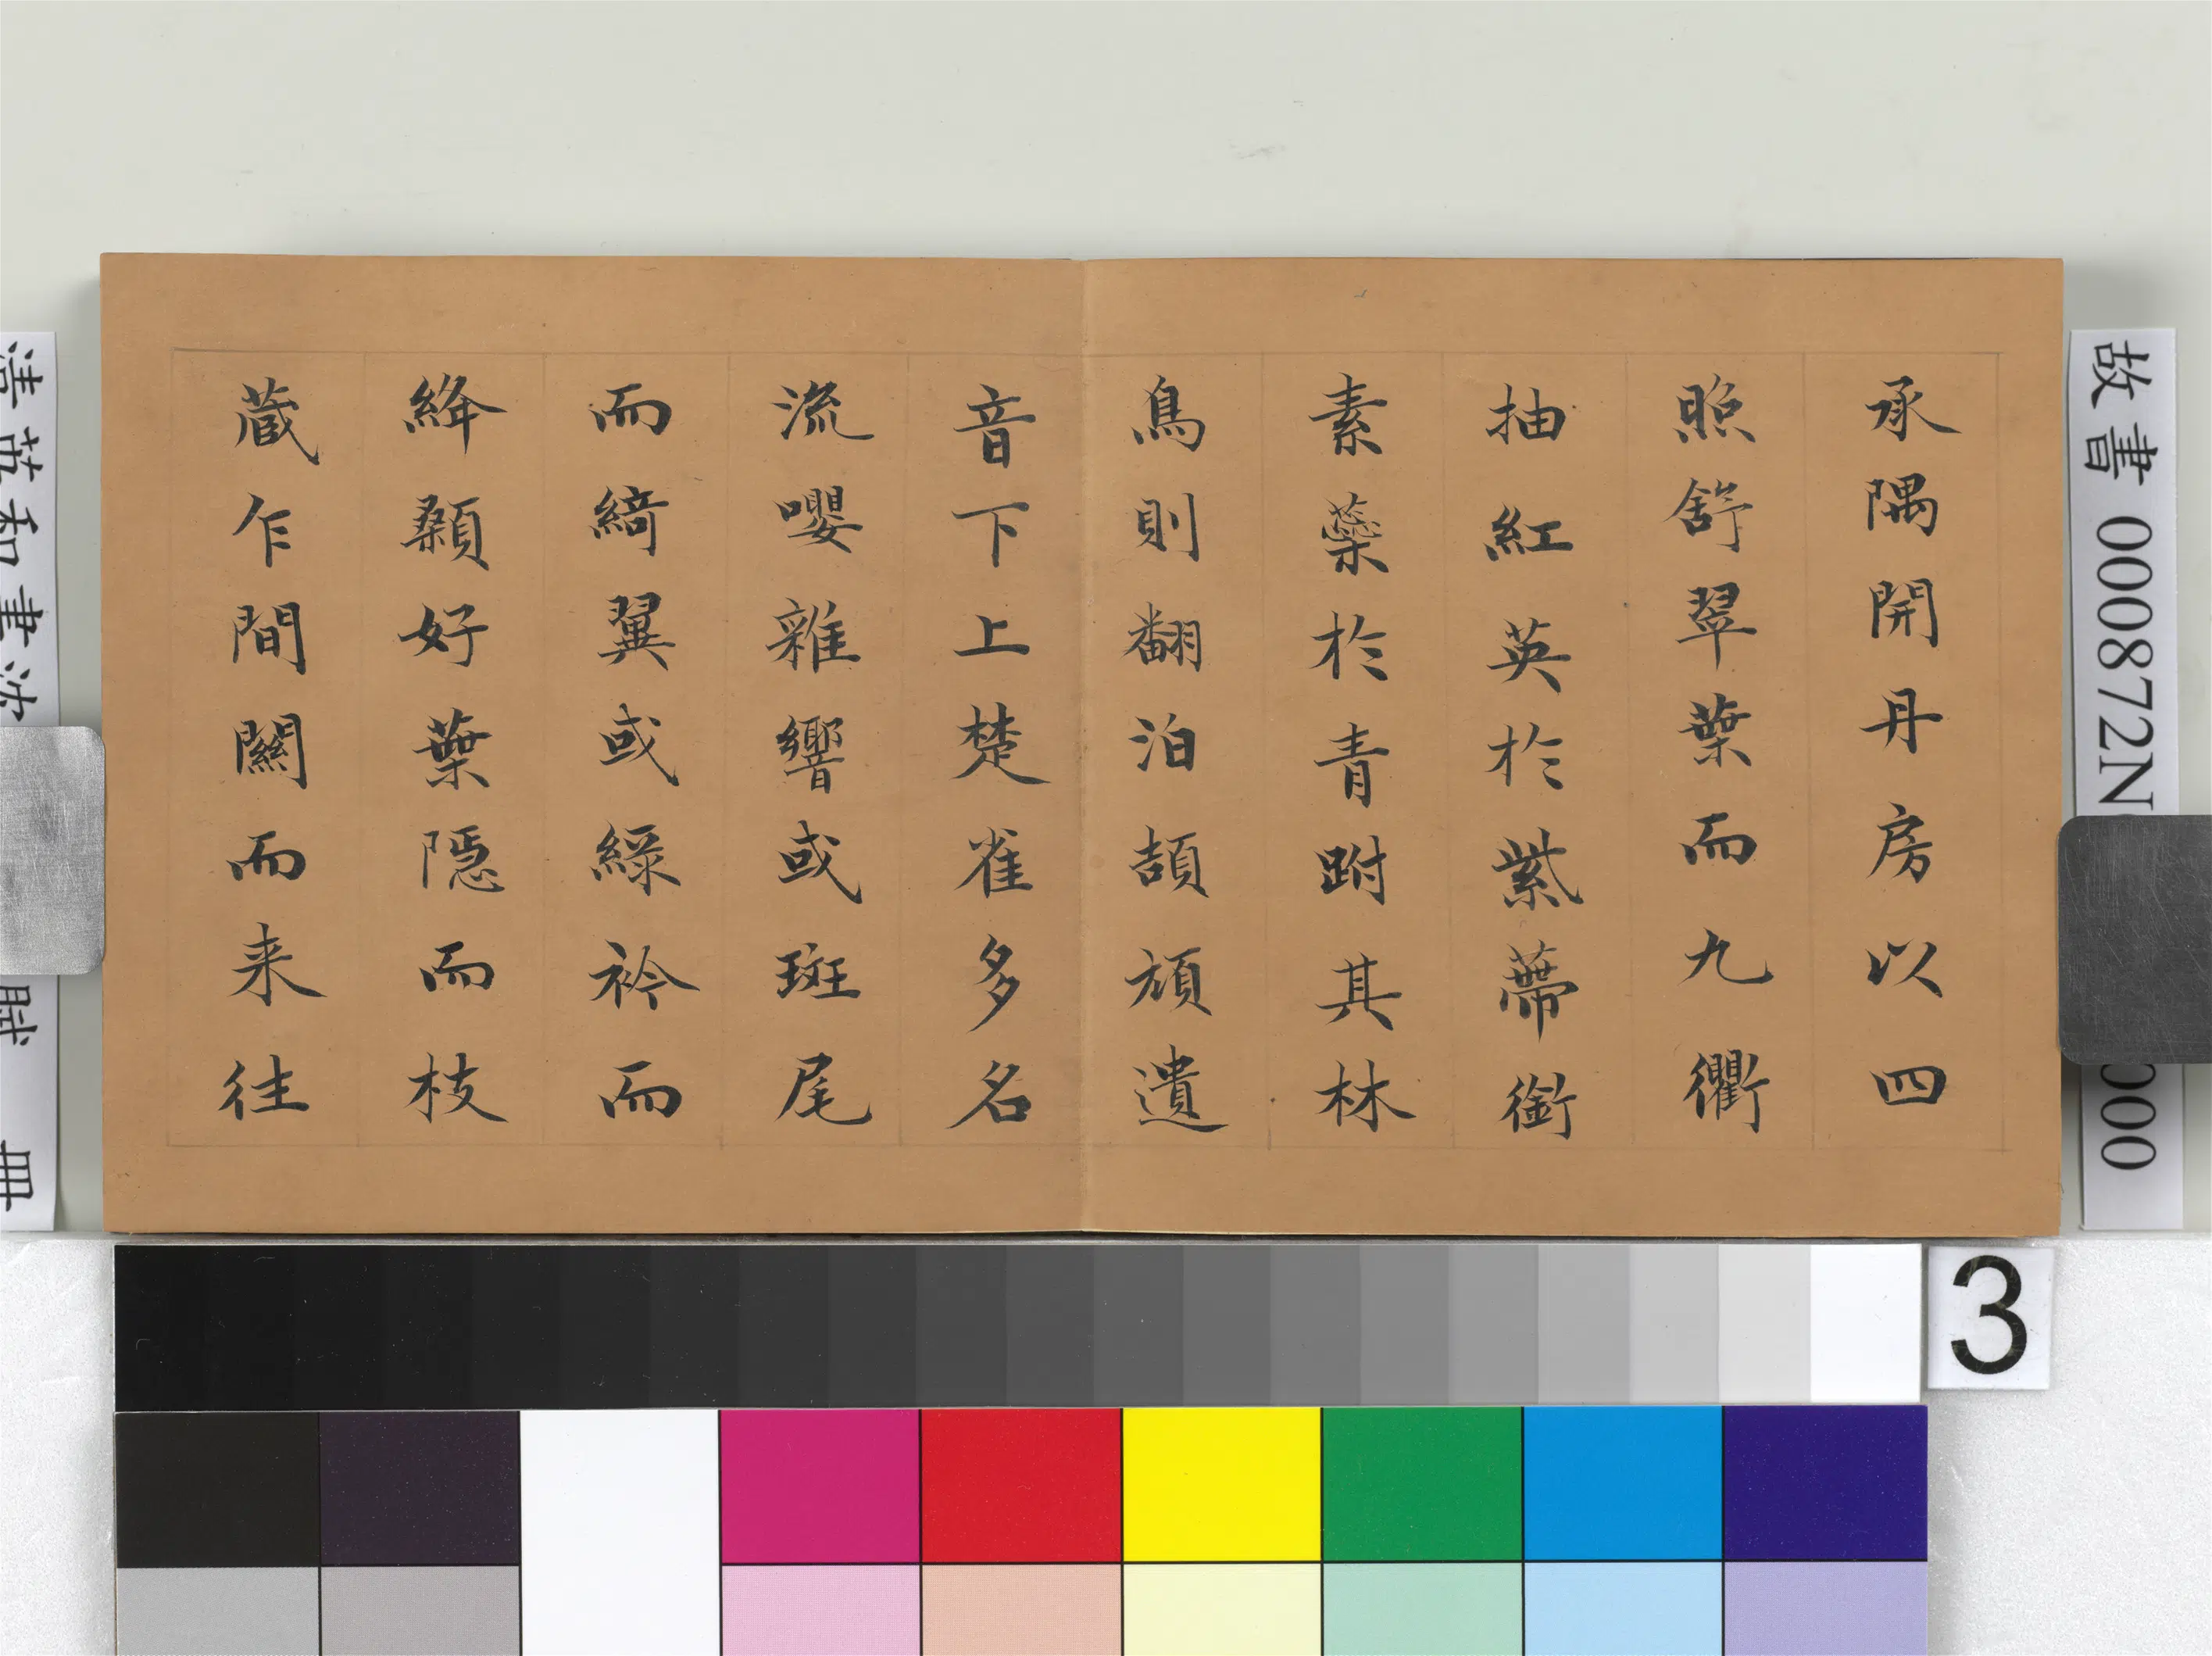 承隅開丹房以四
照舒翠葉而九衢
抽紅英於紫蔕銜
素蘂於青跗其林
鳥則翻泊頡頏遺
音下上楚雀多名
流嚶雜響或斑尾
而綺翼或綠衿而
絳顙好葉隱而枝
蔵乍間關而来往
故書000872N
000
清英和書沈
賦 冊
3